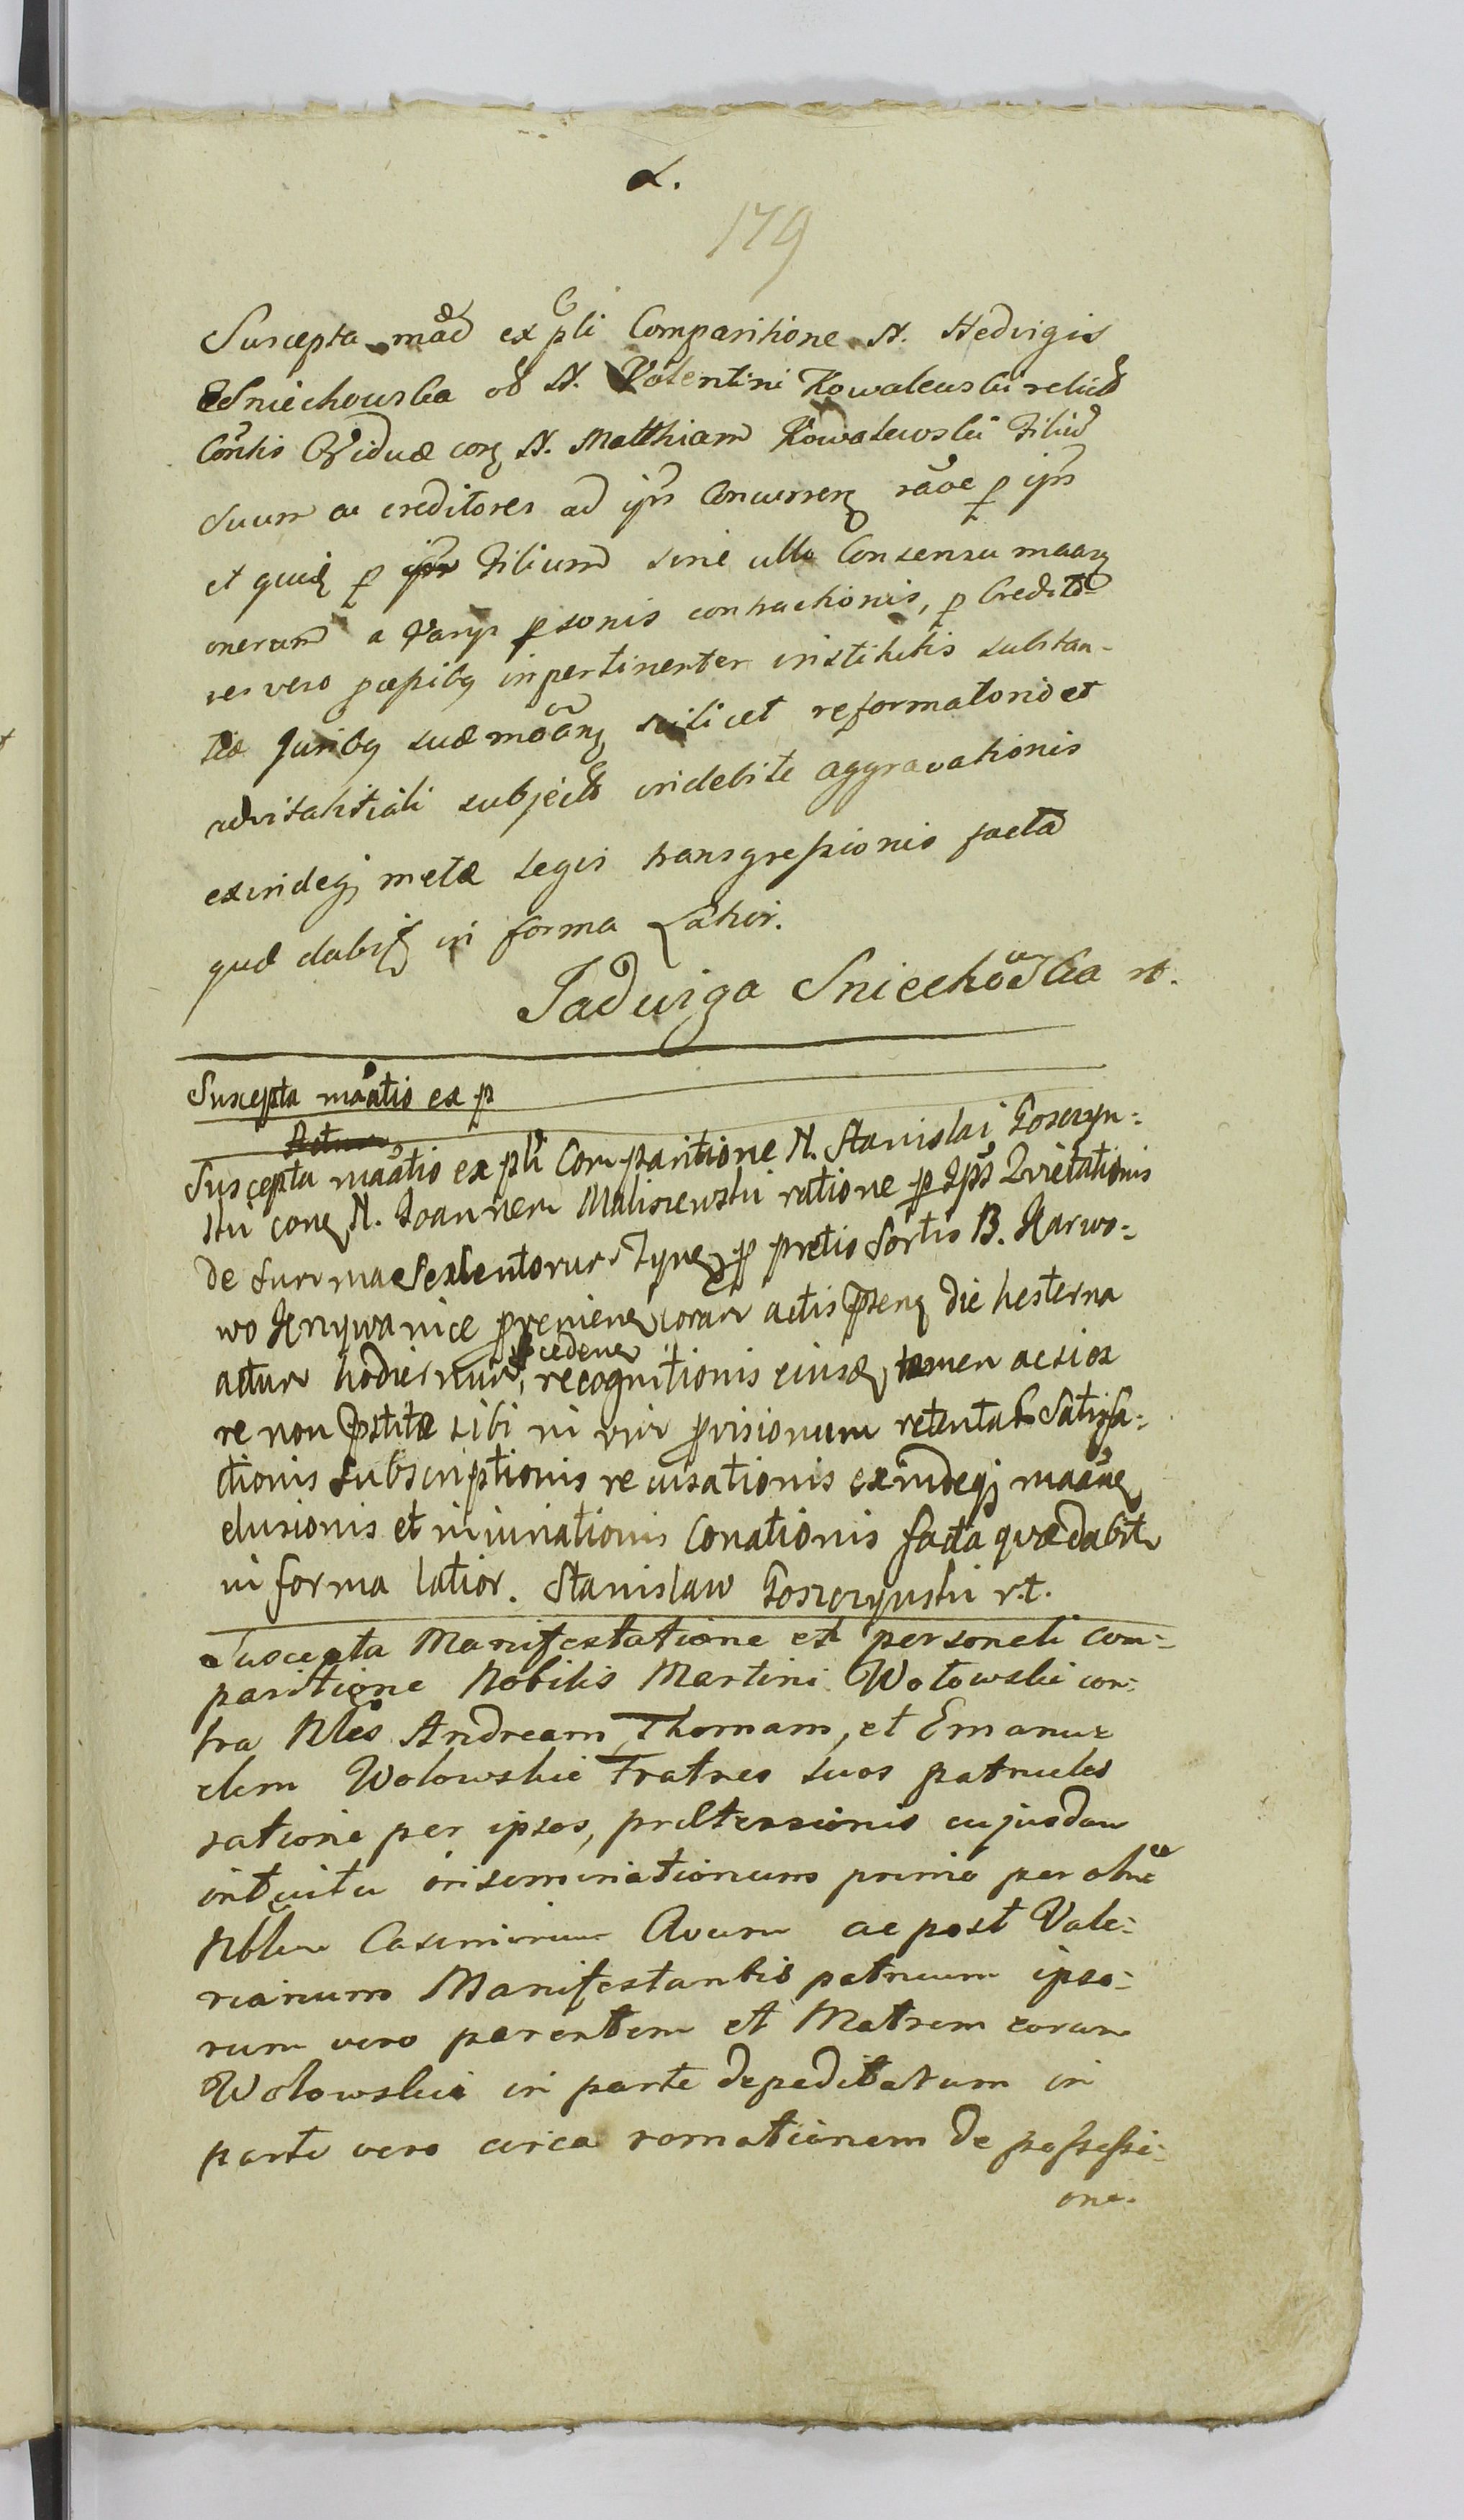 α.
179
Suscepta mad ex pli Comparitione N. Hedvigis
Sniechowska ol N. Valentini Kowalewski relict
Contis Viduæ con N. Matthiam Kowalewski Filiu
Suum ac creditores ad ips Concurren raoe p ips
et quid p Filium sine ullo Consensu maan
onerum a varys psonis contractionis, p Credito
res vero pcepibq inpertinenter institutis substan-
tiæ Juribq suæ moan scilicet reformatorio et
advitalitiali subject indebite aggravationis
exindeq metæ legis transgressionis facta
quæ dabit in forma Latiori.
Jadwiga Sniechowska rt.
Suscepta maatio ex p
Suscepta maatio ex pli Comparitione N. Stanislai Goszczyn-
ski con N. Joannem Maliszewski ratione p Ips Quietationis
de summa Sexcentorum Tyne p pretio Sortis B. Karwo-
wo Krzywanice pveniene coram actis psens die hesterna
actum hodiernum pcedene recognitionis eiusd, tamen acsior
re non pstitæ sibi in vim pvisionum retentar Satisfa-
ctionis subscriptionis recusationis exindeq maane
elusionis et injuriationis Conationis facta quæ dabit
in forma latior. Stanislaw Goszczynski rt.
Suscepta Manifestatione ex personali com-
paritione Nobilis Martini Wolowski con-
tra Nles Andream, Thomam, et Emanu-
elem Wolowskie Fratres suos patrueles
ratione per ipsos, prætensionis cujusdam
intuitu inseminationum primo per olim
Nblem Casimirum Avum ac post Vale-
rianum Manifestantis patruum ipso-
rum vero parentem et Matrem eorum
Wolowskie in parte depaditatum in
parte vero circa romationem de possessi-
one.